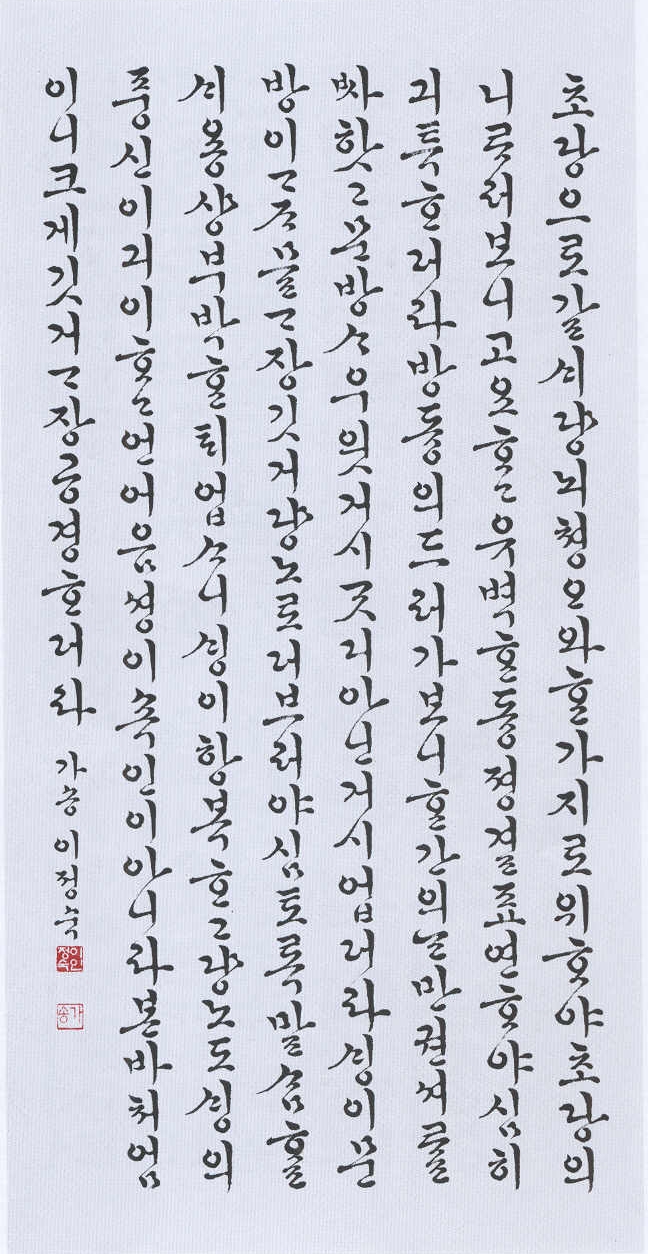 초당으로갈ᄉᆡ냥뇌쳥으와ᄒᆞᆫ가지로위ᄒᆞ야초당의
니르러보니고요ᄒᆞ고유벽ᄒᆞᆫ듕졍결죠연ᄒᆞ야심히
긔특ᄒᆞ더라방듕의드러가보니ᄒᆞᆫ간의ᄂᆞᆫ만권셔ᄅᆞᆯ
ᄡᅡ핫고문방ᄉᆞ우읫거시ᄀᆞᆺ디아닌거시업더라셩이문
방이ᄀᆞᄌᆞ믈ᄀᆞ장깃거냥노로더브러야심토록말ᄉᆞᆷᄒᆞᆯ
ᄉᆡ용샹부박ᄒᆞᆫᄐᆡ업ᄉᆞ니셩이항복ᄒᆞ고냥노도셩의
풍신이긔이ᄒᆞ고언어음셩이쇽인이아니라본바처엄
이니크게깃거ᄀᆞ장공경ᄒᆞ더라 가송이정숙